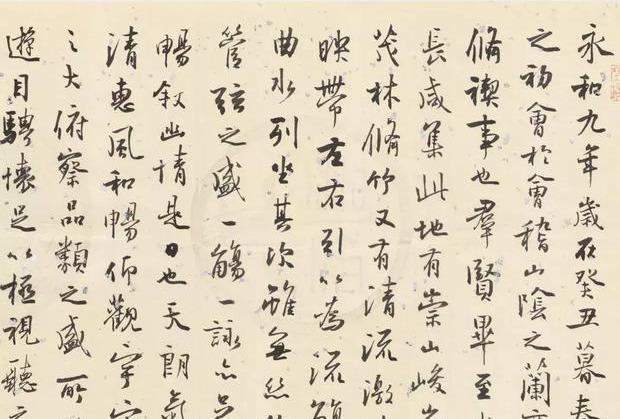 永和九年歲在癸丑暮春
之初會於會稽山陰之蘭
脩禊事也羣賢畢至
長咸集此地有崇山峻
茂林脩竹又有清流激
映帶左右引以為流觴
曲水列坐其次雖無絲
管弦之盛一觴一詠亦足
暢敘幽情是日也天朗氣
清惠風和暢仰觀宇宙
之大俯察品類之盛所
遊目騁懷足以極視聽之